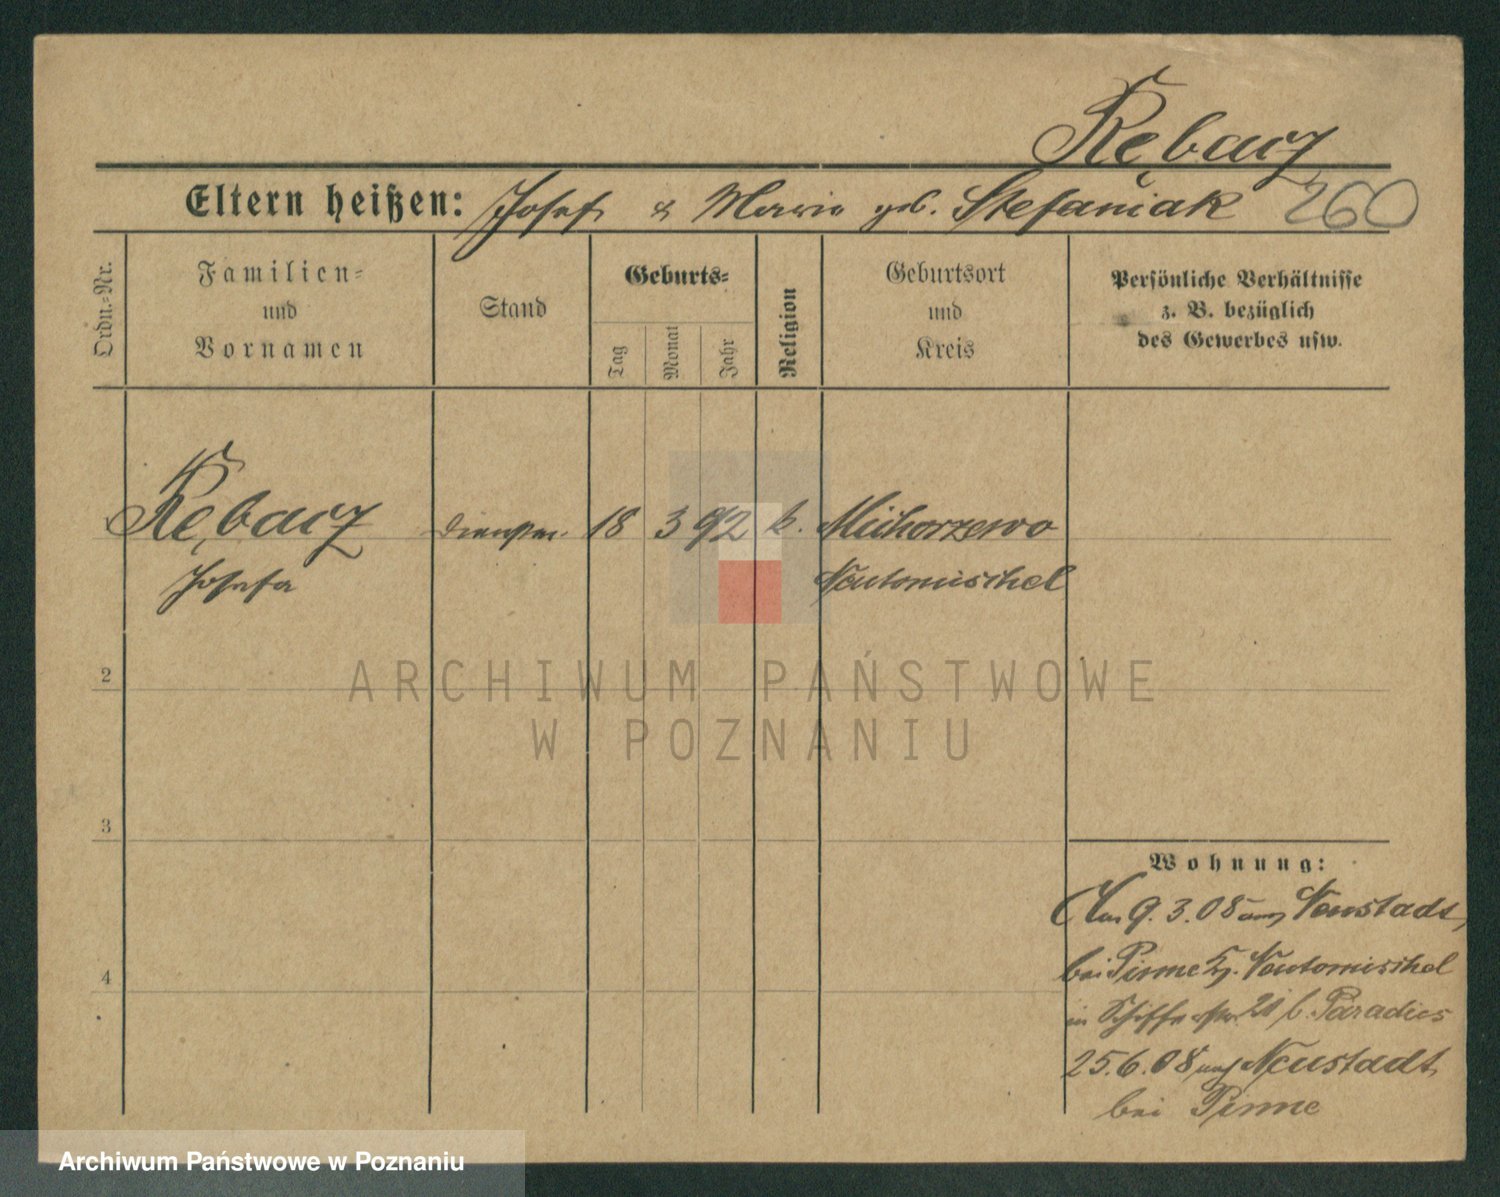 Rębacz
Eltern heißen: Josef & Marie geb. Stefaniak 260
Ordn.-Nr.
Familien-
und
Vornamen
Stand
Geburts-
Tag
Monat
Jahr
Religion
Geburtsort
und
Kreis
Persönliche Verhältnisse
z. B. bezüglich
des Gewerbes usw.
Rębacz 18 3 92 k. Michorzewo
Josefa Neutomischel
2
3
4
ARCHIWUM PAŃSTWOWE
W POZNANIU
Wohnung:
Am 9. 3. 08 aus Neustadt,
bei Pinne Neutomischel
in 21 b. Paradies
25. 6. 08 nach Neustadt
bei Pinne
Archiwum Państwowe w Poznaniu